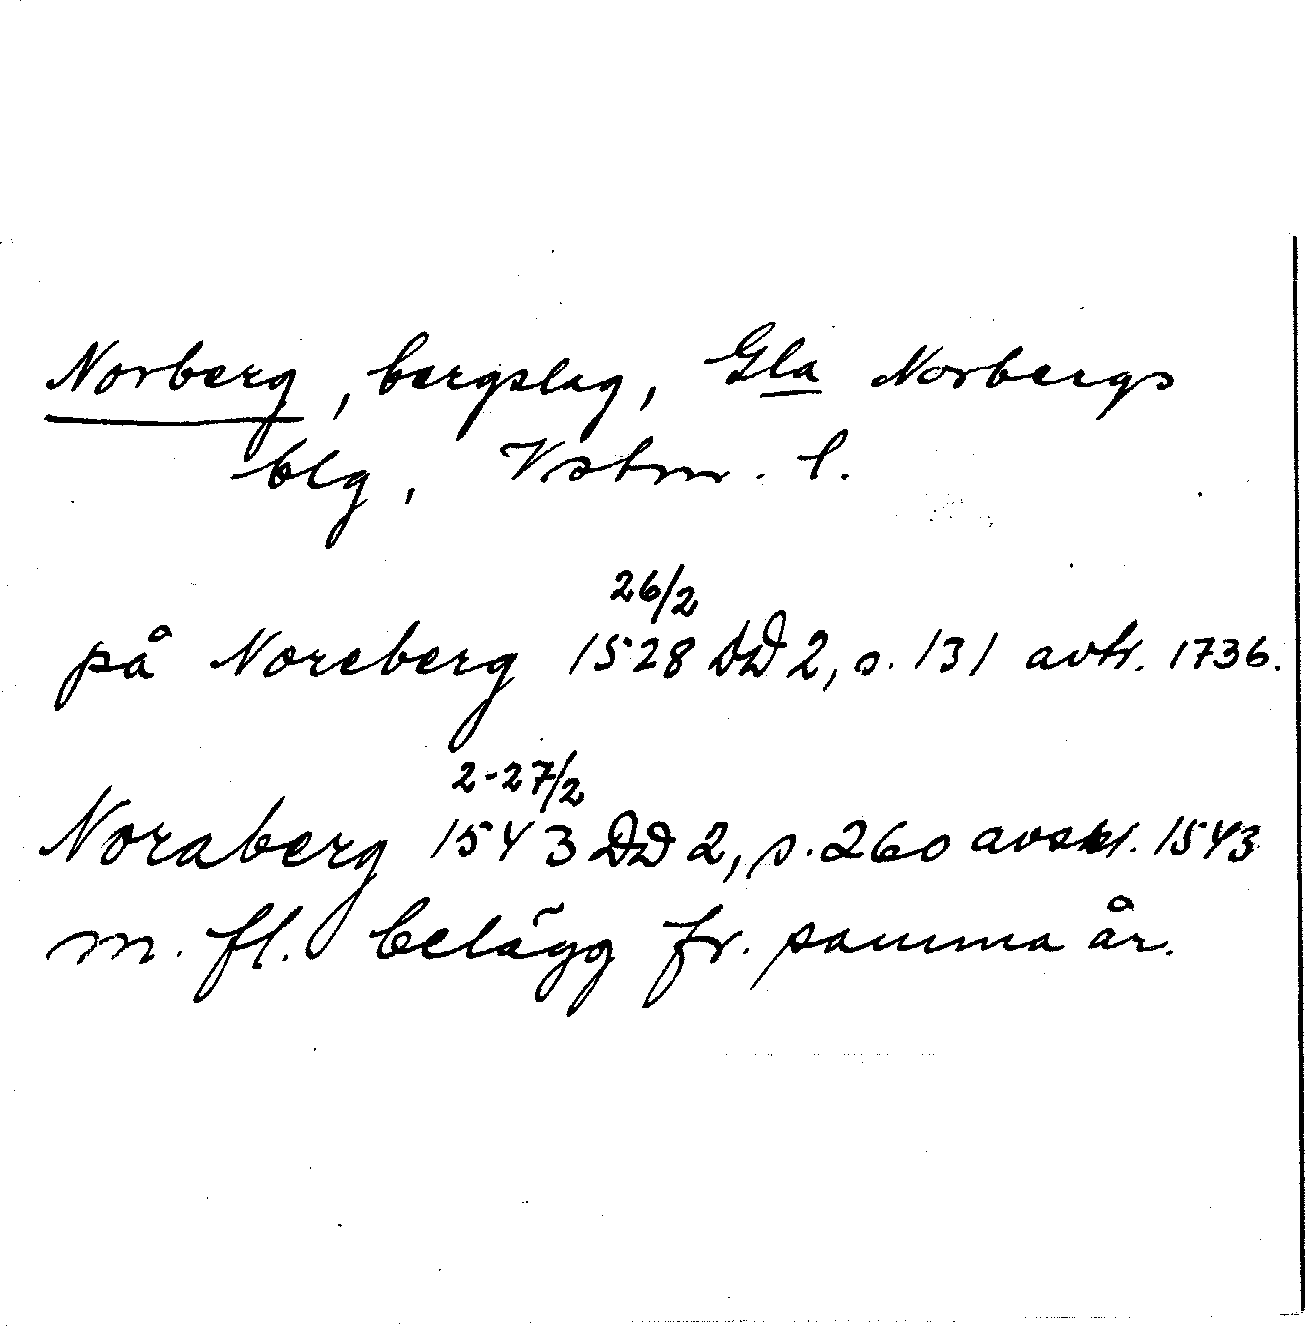 Norberg, bergslag, Gla Norbergs
blg, Vstm. l.
26/2
på Noreberg 1528 DD 2, s. 131 avtr. 1736.
2-27/2
Noraberg 1543 DD 2, s. 260 avskr. 1543
m. fl. belägg fr. samma år.